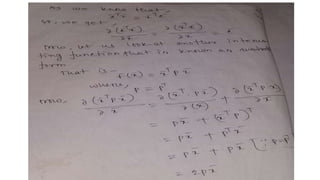 As we know that,
x̄ᵀc̄ = c̄ᵀx̄
so, we get
∂(c̄ᵀx̄)/∂x̄ = ∂(x̄ᵀc̄)/∂x̄ = c̄
Now, let us look at another interes-
ting function that is known as
form
That is —
f(x̄) = x̄ᵀPx̄
where, P = Pᵀ
Now, ∂(x̄ᵀPx̄)/∂x̄ = ∂(x̄ᵀPx̄)/∂(x̄) + ∂(x̄ᵀPx̄)/∂x̄
= Px̄ + (x̄ᵀP)ᵀ
= Px̄ + Pᵀx̄
= Px̄ + Px̄ [∵ P=Pᵀ
= 2Px̄